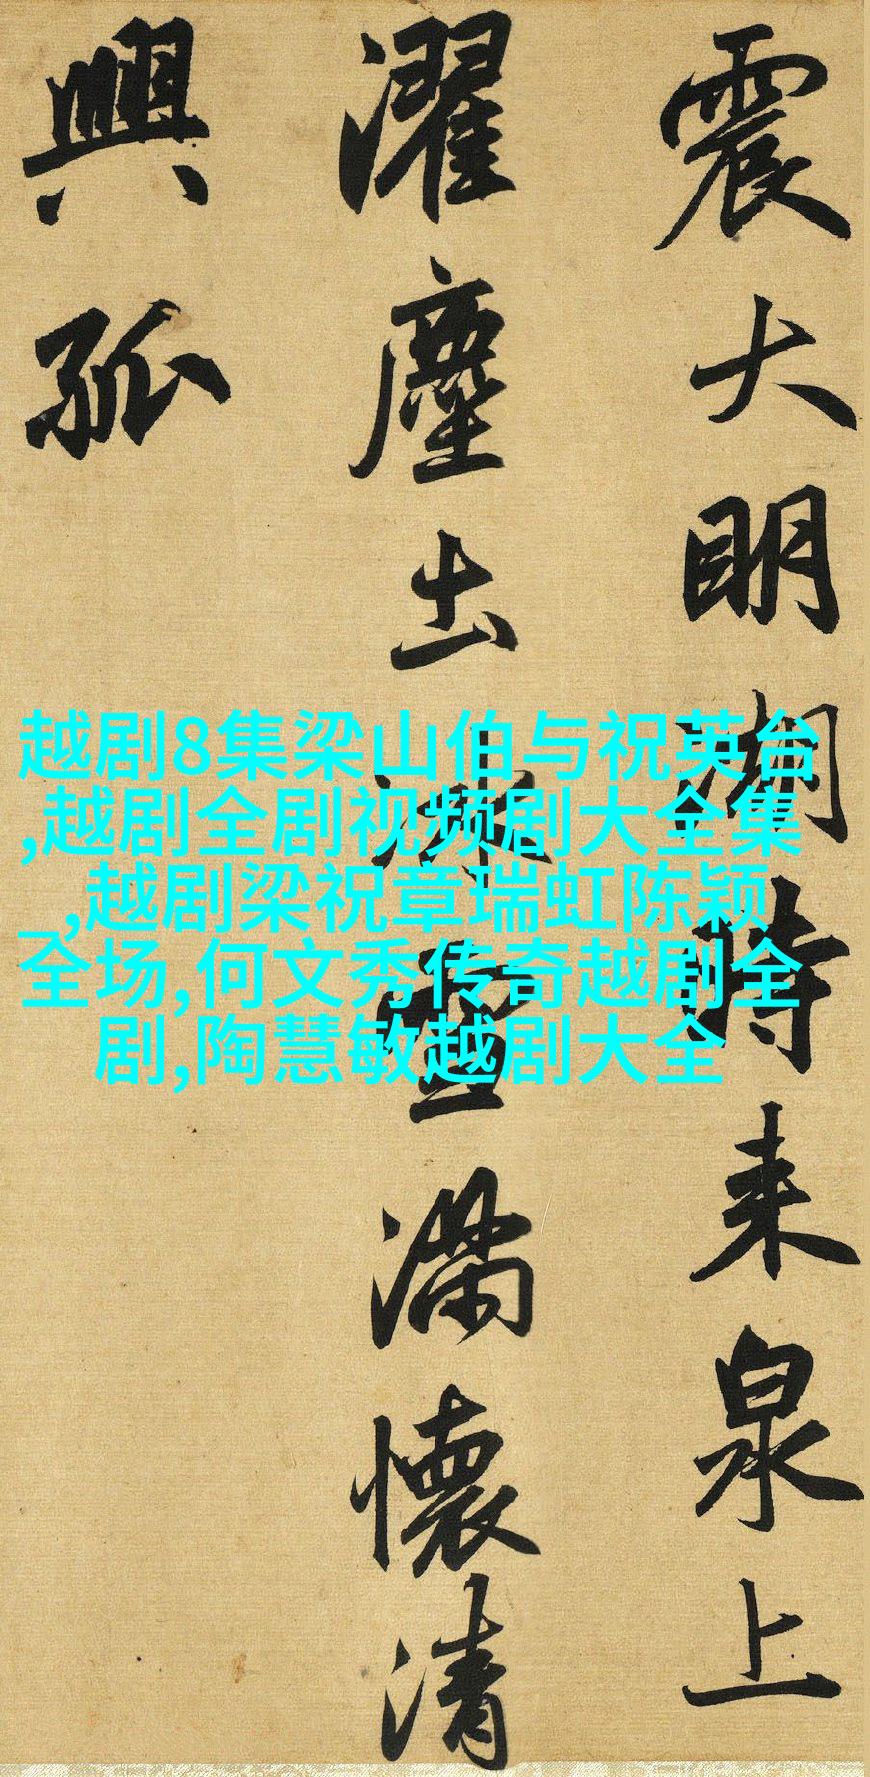 震大明湖時来泉上
濯塵土冰雪滿懷清
興孤
越剧8集梁山伯与祝英台
,越剧全剧视频剧大全集
,越剧梁祝章瑞虹陈颖
全场,何文秀传奇越剧全
剧,陶慧敏越剧大全